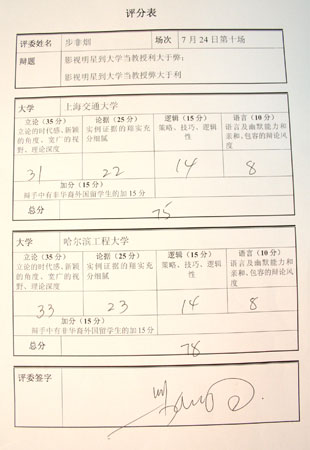 评分表
评委姓名 步非烟 场次 7月24日第十场
辩题 影视明星到大学当教授利大于弊;
影视明星到大学当教授弊大于利
大学 上海交通大学
立论(35分) 论据(25分) 逻辑(15分) 语言(10分)
立论的时代感、新颖 实例证据的翔实充 策略、技巧、逻辑 语言及幽默能力和
的角度、宽广的视 分细腻 性 亲和、包容的辩论风
野、理论深度 度
31 22 14 8
加分(15分)
辩手中有非华裔外国留学生的加15分
总分 75
大学 哈尔滨工程大学
立论(35分) 论据(25分) 逻辑(15分) 语言(10分)
立论的时代感、新颖 实例证据的翔实充 策略、技巧、逻辑 语言及幽默能力和
的角度、宽广的视 分细腻 性 亲和、包容的辩论风
野、理论深度 度
33 23 14 8
加分(15分)
辩手中有非华裔外国留学生的加15分
总分 78
评委签字